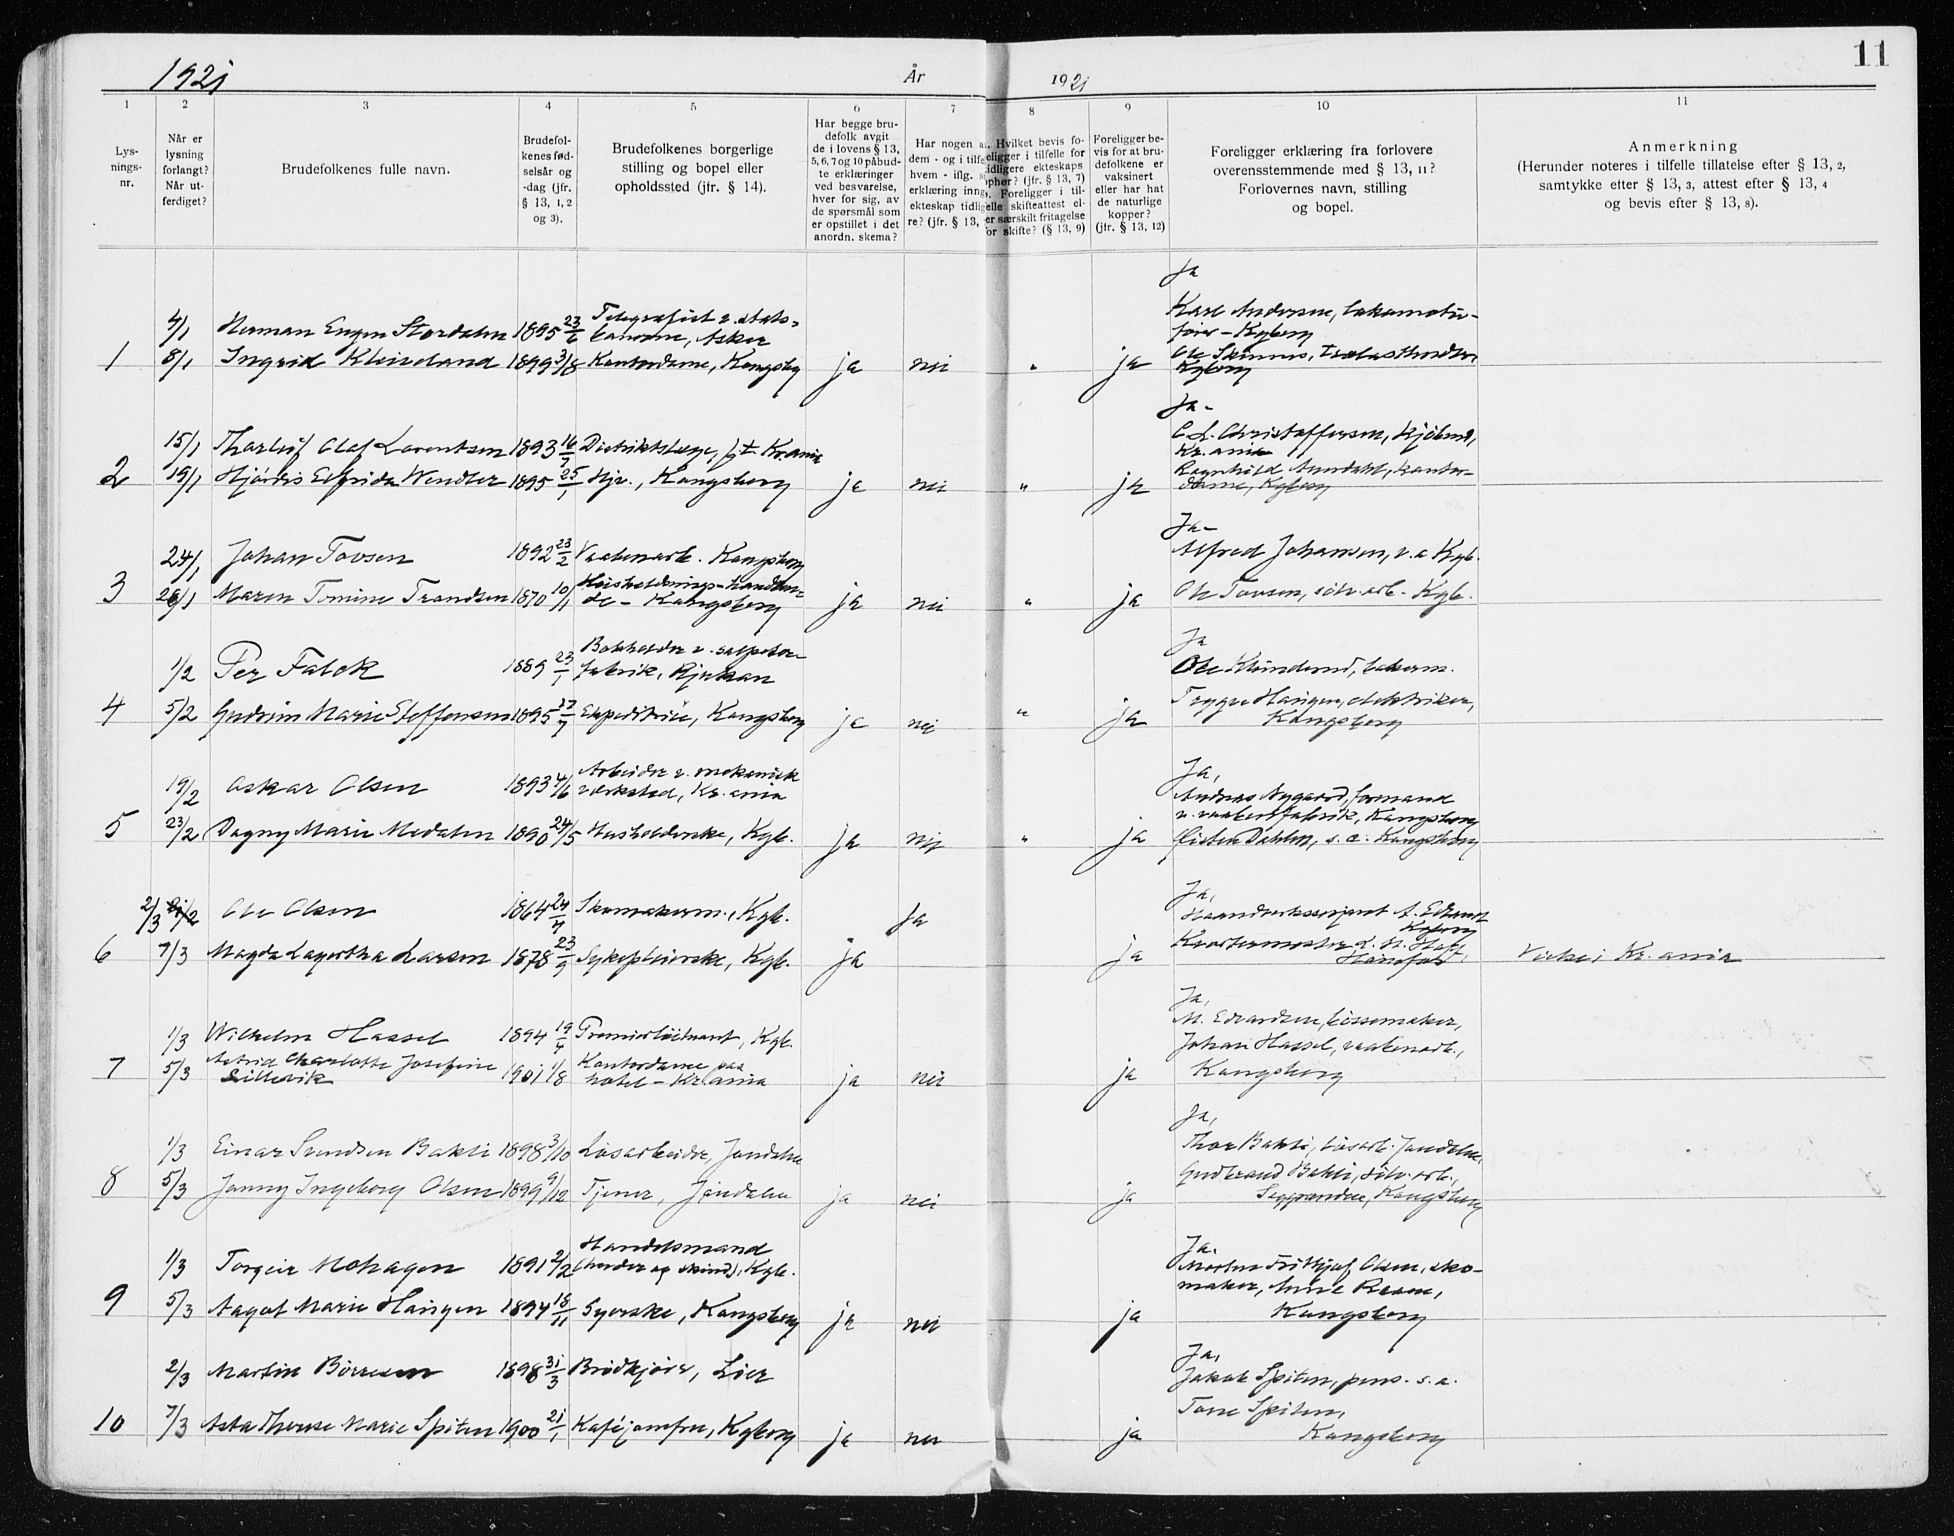 1921
År
1921
11
1 2 3 4 5 6 7 8 9 10 11
Lys-
nings-
nr.
Når er
lysning
forlangt?
Når ut-
ferdiget?
Brudefolkenes fulle navn.
Brudefol-
kenes fød-
selsår og
-dag (jfr.
§ 13, 1, 2
og 3).
Brudefolkenes borgerlige
stilling og bopel eller
opholdssted (jfr. § 14).
Har begge bru-
defolk avgit
de i lovens § 13,
5, 6, 7 og 10 påbud-
te erklæringer
ved besvarelse,
hver for sig, av
de spørsmål som
er opstillet i det
anordn. skema?
Har nogen a
dem - og i tilfe
hvem - iflg. s
erklæring inng
ekteskap tidlig
re? (jfr. § 13,
Hvilket bevis fo-
religger i tilfelle for
tidligere ekteskaps
ophør? (jfr. § 13, 7)
Foreligger i til-
felle skifteattest el-
er særskilt fritagelse
for skifte? (§ 13, 9)
Foreligger be-
vis for at bru-
defolkene er
vaksinert
eller har hat
de naturlige
kopper?
(jfr. § 13, 12)
Foreligger erklæring fra forlovere
overensstemmende med § 13, 11?
Forlovernes navn, stilling
og bopel.
Anmerkning
(Herunder noteres i tilfelle tillatelse efter § 13, 2,
samtykke efter § 13, 3, attest efter § 13, 4
og bevis efter § 13, 8).
Ja
4/1 Herman Eugen Stordalen 1895 23/6 Telegrafist v. stats-
banerne, Asker
Karl Andersen, lokomotiv-
fører - Kgberg
1 8/1 Ingrid Kleivland 1899 3/8 Kontordame, Kongsbg ja nei " ja
Ole Skinnes, trælasthandler,
Kgberg
Ja -
15/1 Thorleif Olaf Lorentsen 1893 16/7 Distriktslæge, p.t. Kr.ania
C. L. Christoffersen,
Kr.ania
2 19/1 Hjørdis Elfrida Wendler 1895 25/1 Hjv., Kongsberg ja nei " ja
Ragnhild Amrdahl, kontor-
dame, Kgberg
Ja -
24/1 Johan Tovsen 1892 23/2 Vaabenarb. Kongsberg Alfred Johansen, v.a Kgb.
3 28/1 Maren Tomine Trondsen 1870 10/1 Husholdnings-handlen-
de - Kongsberg ja nei " ja Ole Tovsen, sølv.arb - Kgb.
Ja
1/2 Per Falck 1889 23/1 Bokholder v. salpeter-
fabrik, Rjukan
4 5/2 Gudrun Marie Steffensen 1895 17/7 Ekspeditrice, Kongsberg ja nei " ja
Trygve Haugen, elektriker,
Kongsberg
Ja,
19/2 Oskar Olsen 1893 4/6 Arbeider v. mekanisk
verksted, Kr.ania
Andreas Nygaard, formand
v. vaabenfabrik, Kongsberg
5 23/2 Dagny Marie Medalen 1890 24/5 Husholderske, Kgb. ja nei " ja Øisten Dahlen, s.a. Kongsberg
Ja,
2/3 21/2 Ole Olsen 1864 24/7 Skomakerm., Kgb. Ja
Haandverkssersjant A.
Kgberg
6 7/3 Magda Lagertha Larsen 1878 23/9 Sykepleierske, Kgb. ja ja
Kvartermester L. H.
Hønefos
Viet i Kr.ania
Ja,
1/3 Wilhelm Hassel 1894 19/4 Premierløitnant, Kgb.
M. Edvardsen, bøssemaker,
Johan Hassel, vaabenarb.,
Astrid Charlotte Josefine
7 5/3 Lillevik 1901 1/8 Kontordame paa
hotel - Kr.ania ja nei ja Kongsberg
Ja,
1/3 Einar Svendsen Bakli 1898 3/10 Løsarbeider, Jondalen
Thor Bakli, løsarb. Jondalen,
8 5/3 Jenny Ingeborg Olsen 1899 9/12 Tjener, Jondalen ja nei ja
Gudbrand Bakli, sølv.arb.,
Kongsberg
Ja.
1/3 Torgeir Mohagen 1891 2/2 Handelsmand
(huder og skind), Kgb.
Morten Fritjof Olsen, sko-
maker,
9 5/3 Aagot Marie Haugen 1894 18/11 Syerske, Kongsberg ja nei ja
Kongsberg
Ja,
2/3 Martin Børresen 1898 31/3 Brødkjører, Lier
Jakob Spiten, pens. s.a.
Tone Spiten,
10 7/3 Asta Therese Marie Spiten 1900 21/1 Kaféjomfru, Kgberg ja nei ja
Kongsberg